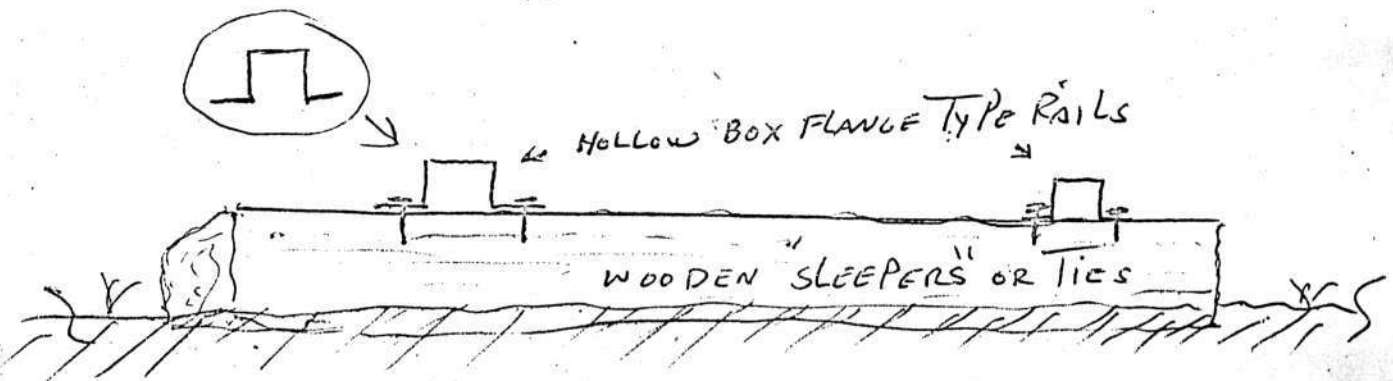 HOLLOW BOX FLANGE TYPE RAILS
WOODEN "SLEEPERS" OR TIES